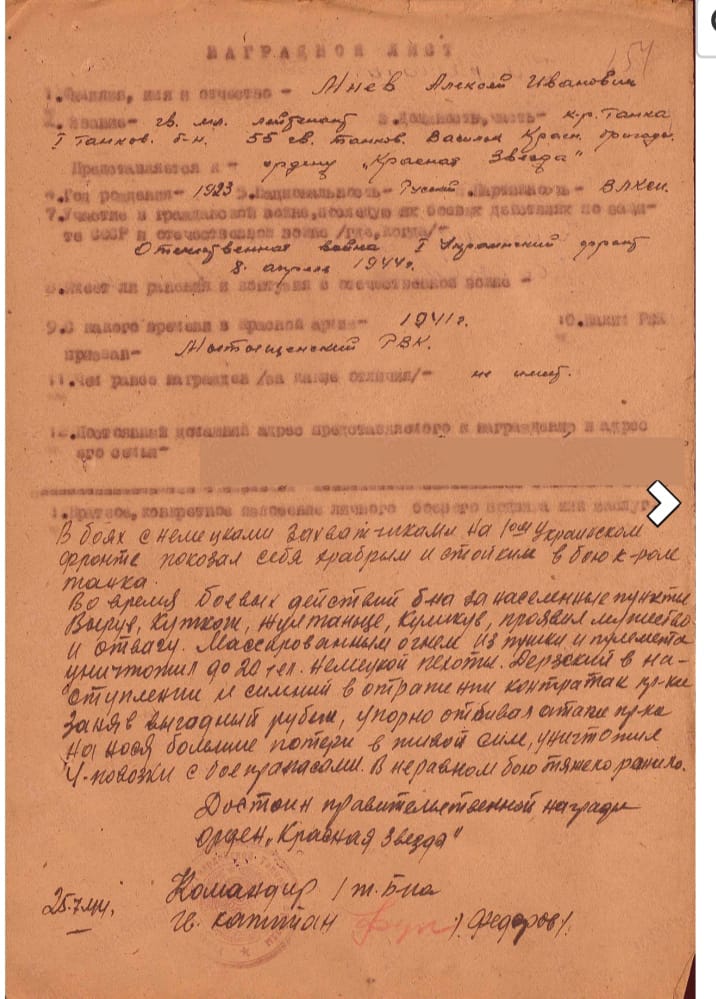 НАГРАДНОЙ ЛИСТ
154
1. Фамилия, имя и отчество - Мнев Алексей Иванович
2. Звание - гв. мл. лейтенант 3. Должность, часть - к-р. танка
I танков. б-н. 55 гв. танков. Васильк. Красн. бригады.
Представляется к - ордену „Красная Звезда"
4. Год рождения - 1923 5. Национальность - Русский 6. Партийность - ВЛКСМ.
7. Участие в гражданской войне, последующих боевых действиях по защи-
те СССР и отечественной войне /где, когда/ -
Отечественная война I Украинский фронт
8. апрель 1944г.
8. Имеет ли ранения и контузии в отечественной войне -
9. С какого времени в Красной армии - 1941г. 10. Каким РВК
призван - РВК.
11. Чем ранее награжден /за какие отличия/ - не имеет.
12. Постоянный домашний адрес представляемого к награждению и адрес
его семьи -
1. Краткое, конкретное изложение личного боевого подвига или заслуг
В боях с немецкими захватчиками на 1ом Украинском
фронте показал себя храбрым и стойким в бою к-ром
танка.
Во время боевых действий б-на за населенные пункты
Куткож, Жултаньце, Куликув, проявил мужество
и отвагу. Массированным огнем из пушки и пулемета
уничтожил до 20 чел. немецкой пехоты. Дерзский в на-
ступлении и сильный в отражении контратак пр-ка
заняв выгадный рубеж, упорно отбивал атаки пр-ка
нанося большие потери в живой силе, уничтожил
4-повозки с боеприпасами. В неравном бою тяжело ранило.
Достоин правительственной награды
орден „Красная Звезда"
Командир 1 т. Б-на
25.7.44г. гв. капитан /Федоров/.